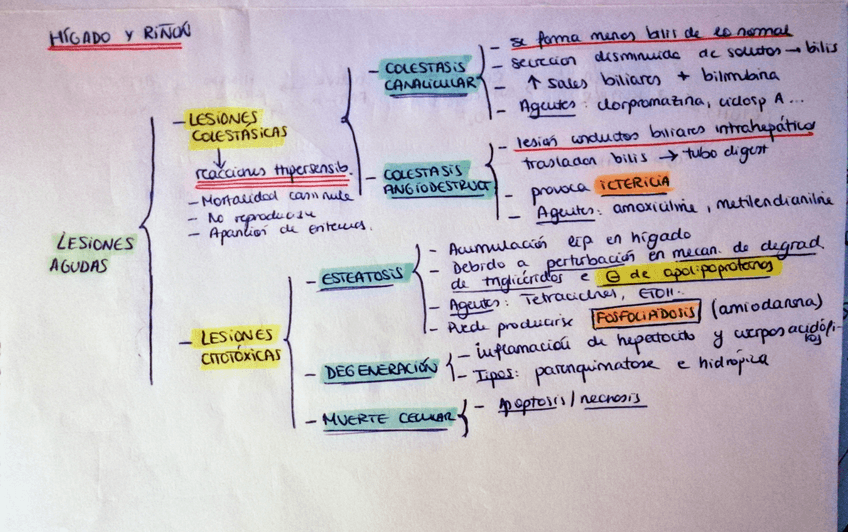 HÍGADO Y RIÑÓN
LESIONES
AGUDAS
- LESIONES
COLESTÁSICAS
reacciones Hipersensib.
- Mortalidad
- No
- Aparición de
- COLESTASIS
CANALICULAR
- se forma menos bilis de lo normal
- secreción disminuida de solutos → bilis
- ↑ sales biliares + bilirrubina
- Agentes: clorpromazina, ciclosp A...
- COLESTASIS
ANGIODESTRUCT
- lesión conductos biliares intrahepático
trasladan bilis → tubo digest
- provoca ICTERICIA
- Agentes: amoxicilina, metilendianilina
- LESIONES
CITOTÓXICAS
- ESTEATOSIS
- Acumulación lip en hígado
- Debido a perturbación en mecan. de degrad.
de triglicéridos e ⊖ de apolipoproteínas
- Agentes: Tetraciclinas, ETOH.
- Puede producirse FOSFOLIADOSIS (amiodarona)
- DEGENERACIÓN
- inflamación de hepatocito y cuerpos acidófilos
- Tipos: parenquimatose e hidrópica
- MUERTE CELULAR
- Apoptosis / necrosis